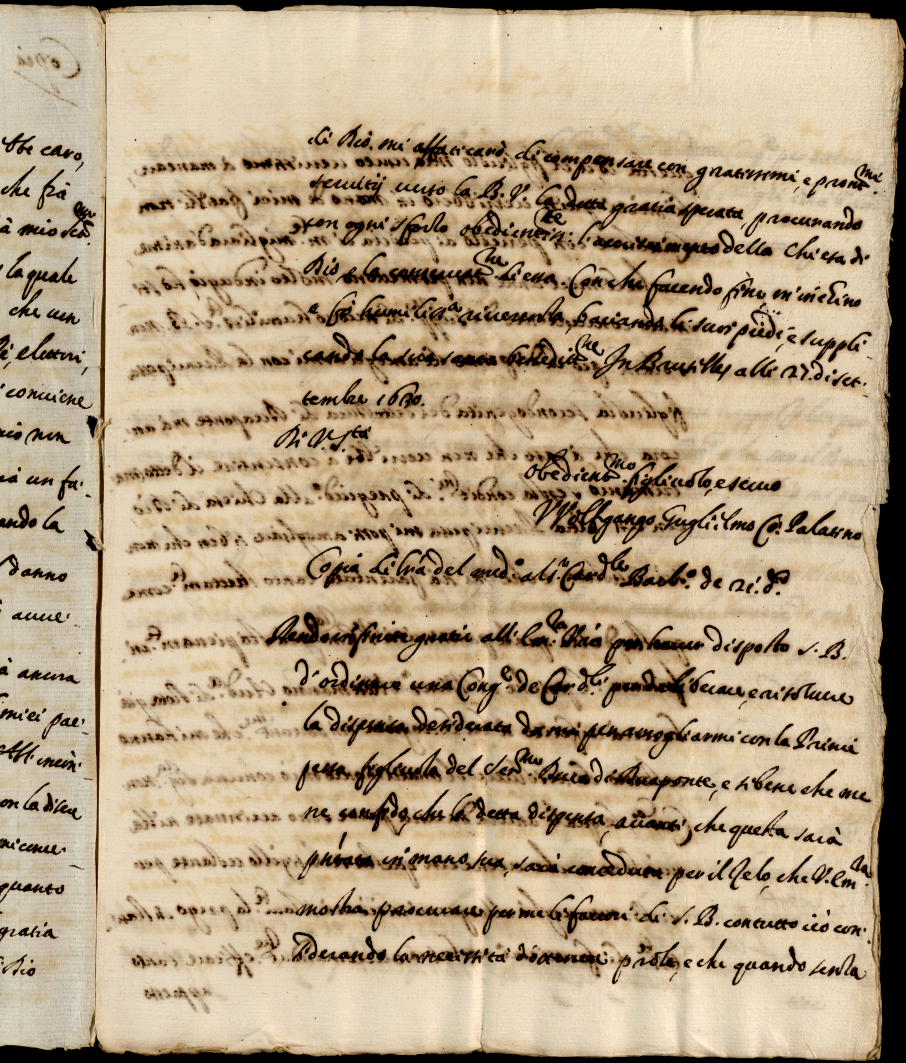 Copia
Abe caro,
che frà
à mio Ser.mo
la quale
che un
elettori,
conviene
mio non
un fa-
ando la
danno
avve-
à ancora
miei pae-
on la disc
quanto
gratia
Dio
di Dio. mi affaticarò di compensare con gratissimi, e pront.mi
servitij verso la B. V. la detta gratia sperata, procurando
con ogni sforzo obedien.te l'accrescimento della Chiesa di
Dio, e la di essa. Con che facendo fine m'inclino
à far humiliss.a riverenza, baciando li suoi piedi, e suppli-
cando la sua santa bened.ne In Brusselles alli 27. di set-
tembre 1630.
Di V. S.tà
obedient.mo figliuolo, e servo
Wolffgango Guglielmo Co: Palatino
Copia di l'ra del med.o al S.r Card.le Barb.o de 21. d.o
Rendo infinite gratie all'Em.za V'ra per haver disposto S. B.
d'ordinare una Cong.e de Card.li per deliberare, e risolvere
la dispensa desiderata da mi per amogliarmi con la Princi
pessa figliuola del Ser.mo Duca di Dueponte, e si bene che me
ne confido, che la detta dispensa, avanti che questa sarà
p'ntata in mano sua, sarà conceduta per il zelo, che V. Em.za
mostra procurare per me li favori di S. B. con tutto ciò con-
siderando la necessità d'ottenere prole, e che quando senza